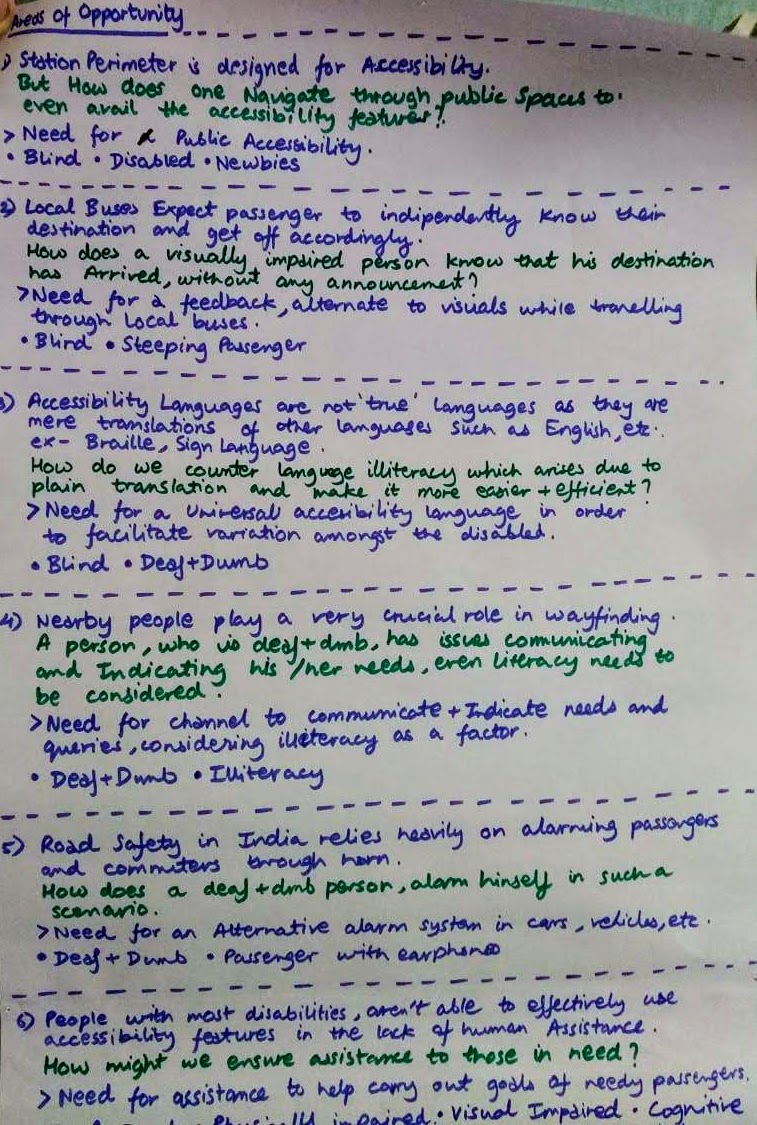 Areas of Opportunity
1) Station Perimeter is designed for Accessibility.
But How does one Navigate through public spaces to
even avail the accessibility features?
> Need for Public Accessibility.
• Blind • Disabled • Newbies
2) Local Buses Expect passenger to indipendently know their
destination and get off accordingly.
How does a visually impaired person know that his destination
has Arrived, without any announcement?
> Need for a feedback, alternate to visuals while travelling
through Local buses.
• Blind • Sleeping Passenger
3) Accessibility Languages are not 'true' languages as they are
mere translations of other languages such as English, etc.
ex- Braille, Sign Language.
How do we counter language illiteracy which arises due to
plain translation and make it more easier + efficient?
> Need for a Universal accesibility language in order
to facilitate variation amongst the disabled.
• Blind • Deaf+Dumb
4) Nearby people play a very crucial role in wayfinding.
A person, who is deaf+dmb, has issues communicating
and Indicating his/her needs, even literacy needs to
be considered.
> Need for channel to communicate + Indicate needs and
queries, considering illeteracy as a factor.
• Deaf+Dumb • Illiteracy
5) Road Safety in India relies heavily on alarming passangers
and commuters through horn.
How does a deaf+dmb person, alarm himself in such a
scenario.
> Need for an Alternative alarm system in cars, vehicles, etc.
• Deaf + Dumb • Passenger with earphones
6) People with most disabilities, aren't able to effectively use
accessibility features in the lack of human Assistance.
How might we ensure assistance to those in need?
> Need for assistance to help carry out goals of needy passengers.
Physically impaired • Visual Impaired • Cognitive